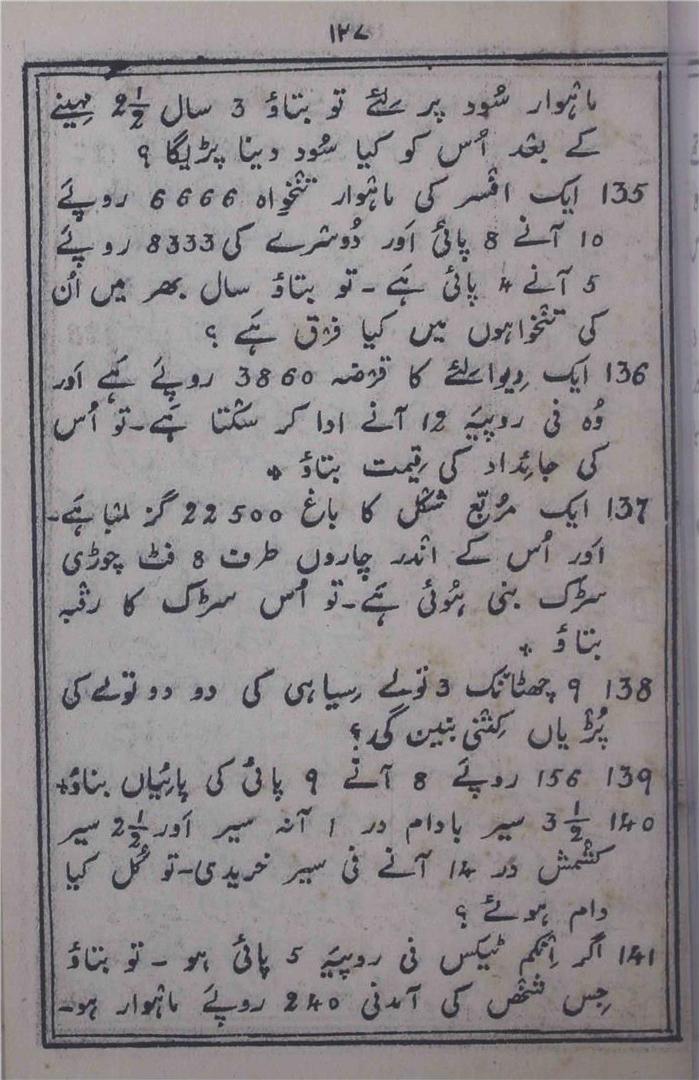 ۱۲۷
ماہوار سُود پر لئے تو بتاؤ 3 سال 2½ مہینے
کے بعد اُس کو کیا سُود دینا پڑیگا ؟
135 ایک افسر کی ماہوار تنخواہ 6666 روپئے
10 آنے 8 پائی اَور دُوسرے کی 8333 روپئے
5 آنے 4 پائی ہَے - تو بتاؤ سال بھر میں اُن
کی تنخواہوں میں کیا فرق ہَے ؟
136 ایک دِیوالئے کا قرضہ 3860 روپئے ہَے اَور
وُہ فی روپیَہ 12 آنے ادا کر سکتا ہَے - تو اُس
کی جائداد کی قِیمت بتاؤ +
137 ایک مربّع شکل کا باغ 22500 گز لمبا ہَے -
اَور اُس کے اندر چاروں طرف 8 فٹ چوڑی
سڑک بنی ہُوئی ہَے - تو اُس سڑک کا رقبہ
بتاؤ +
138 9 چھٹانک 3 تولے سِیاہی کی دو دو تولے کی
پُڑیاں کِتنی بنیں گی ؟
139 156 روپئے 8 آنے 9 پائی کی پائیاں بناؤ +
140 3½ سیر بادام در 1 آنہ سیر اَور 2½ سیر
کشمش در 14 آنے فی سیر خریدی - تو کُل کیا
دام ہوئے ؟
141 اگر اِنکم ٹیکس فی روپیَہ 5 پائی ہو - تو بتاؤ
جِس شخص کی آمدنی 240 روپئے ماہوار ہو -